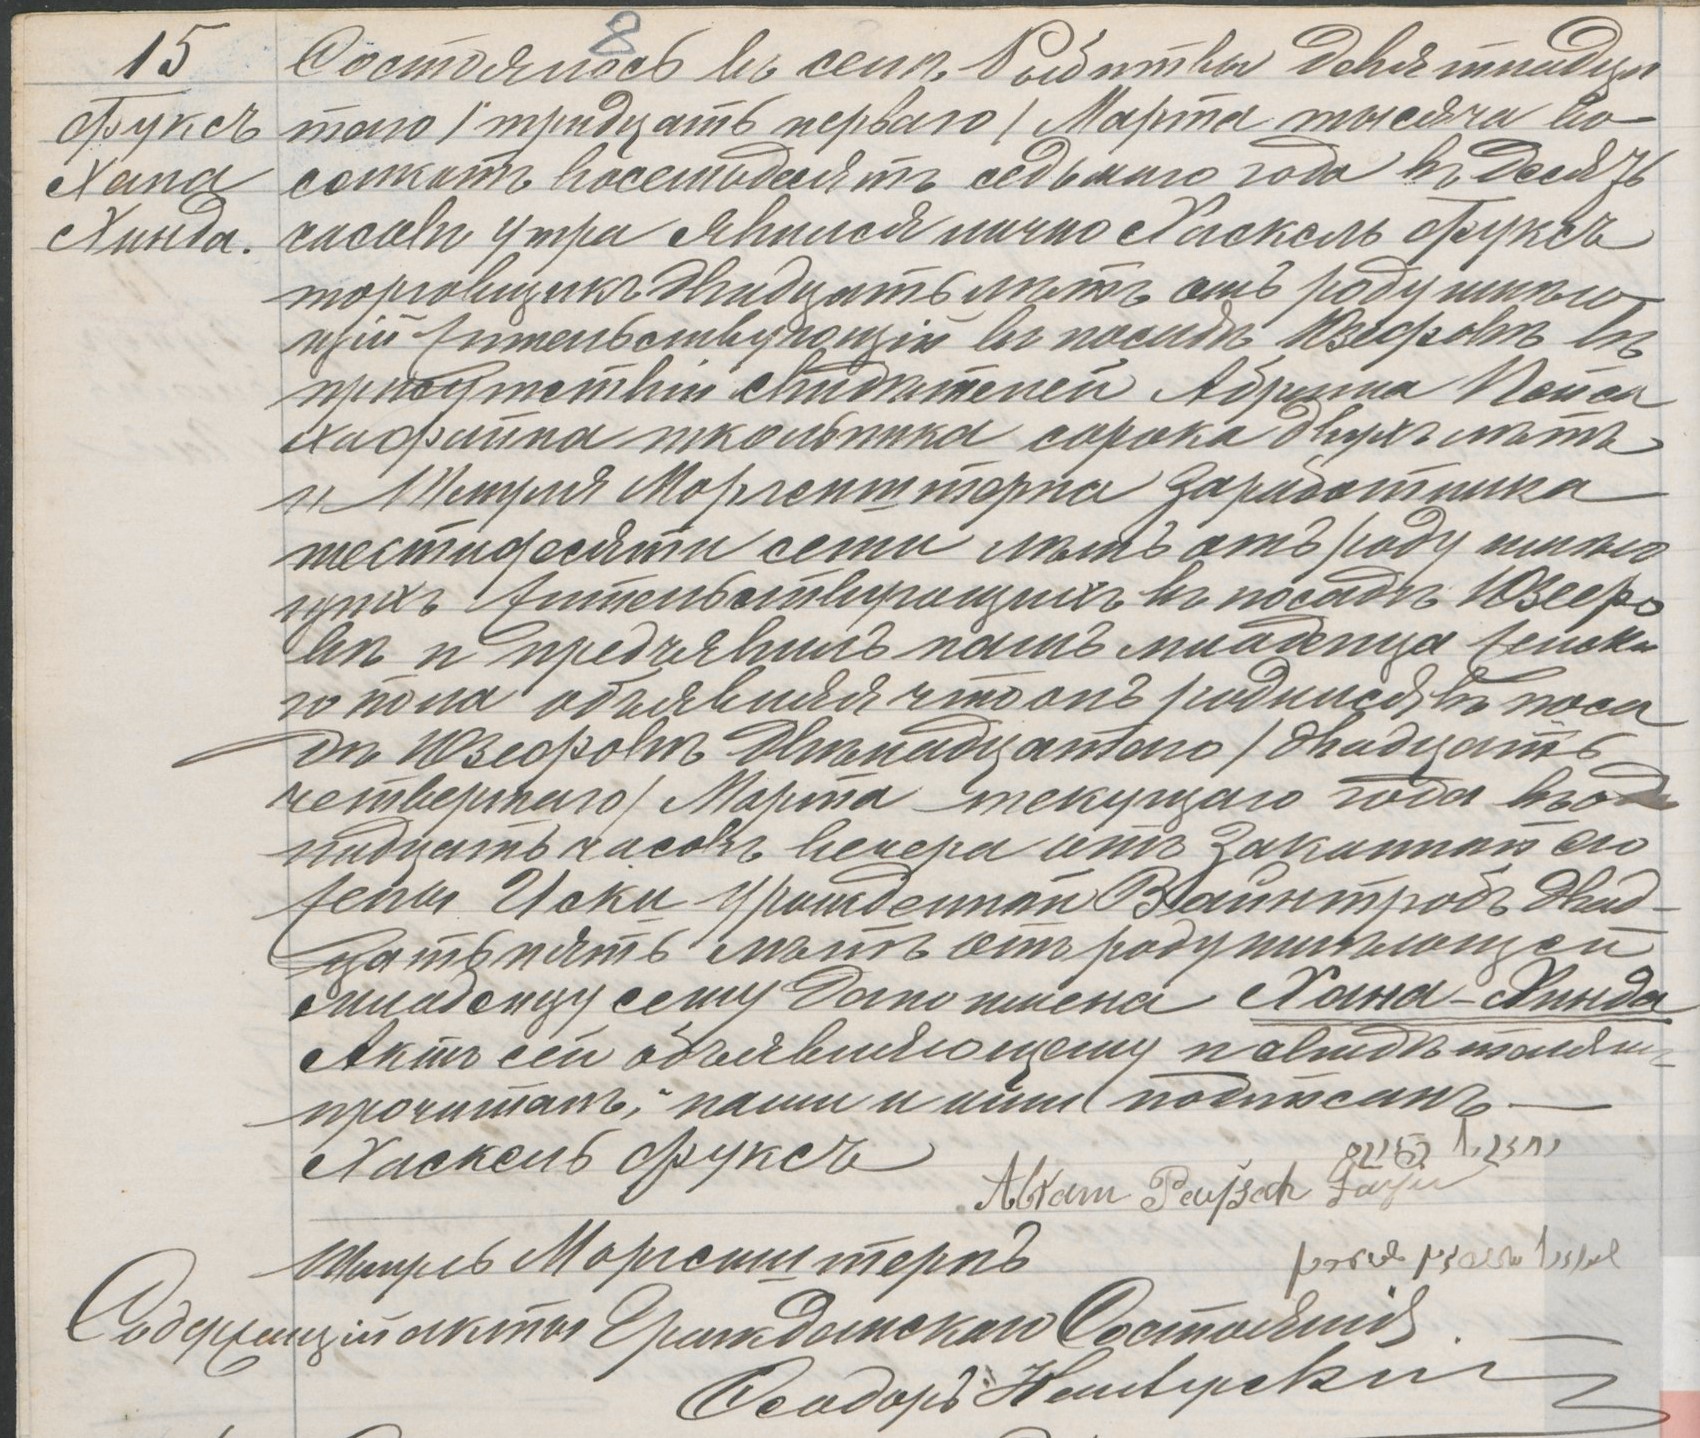 8
15
Фуксъ
Хана
Хинда.
Состоялось въ селѣ девятнадца
таго / тридцать перваго / Марта тысяча во-
семьсотъ восемьдесятъ седьмаго года въ десять
часовъ утра явился лично Хаскель Фуксъ
торговщикъ двадцать лѣтъ отъ роду имѣю
щій жительствующій въ посадѣ Юзефовѣ въ
присутствіи свидѣтелей Абрама Пейса
ха Файна школьника сорока двухъ лѣтъ
и Шмуля Моргенштерна заработника
шестидесяти семи лѣтъ отъ роду имѣю
щихъ жительствующихъ въ посадѣ Юзефо
вѣ и предъявилъ намъ младенца женска
го пола объявляя что онъ родился въ поса
дѣ Юзефовѣ двѣнадцатаго / двадцать
четвертаго / Марта текущаго года въ оди
надцать часовъ вечера отъ законной его
жены Иски урожденной Вайнтробъ двад-
цать пять лѣтъ отъ роду имѣющей
младенцу сему дано имена Хана-Хинда
Актъ сей объявляющему и свидѣтелямъ
прочитанъ, нами и ими подписанъ
Хаскель Фуксъ
Abram Pejsach Fajn
Шмуль Моргенштернъ
Содержащій акты Гражданскаго Состоянія
Феодоръ